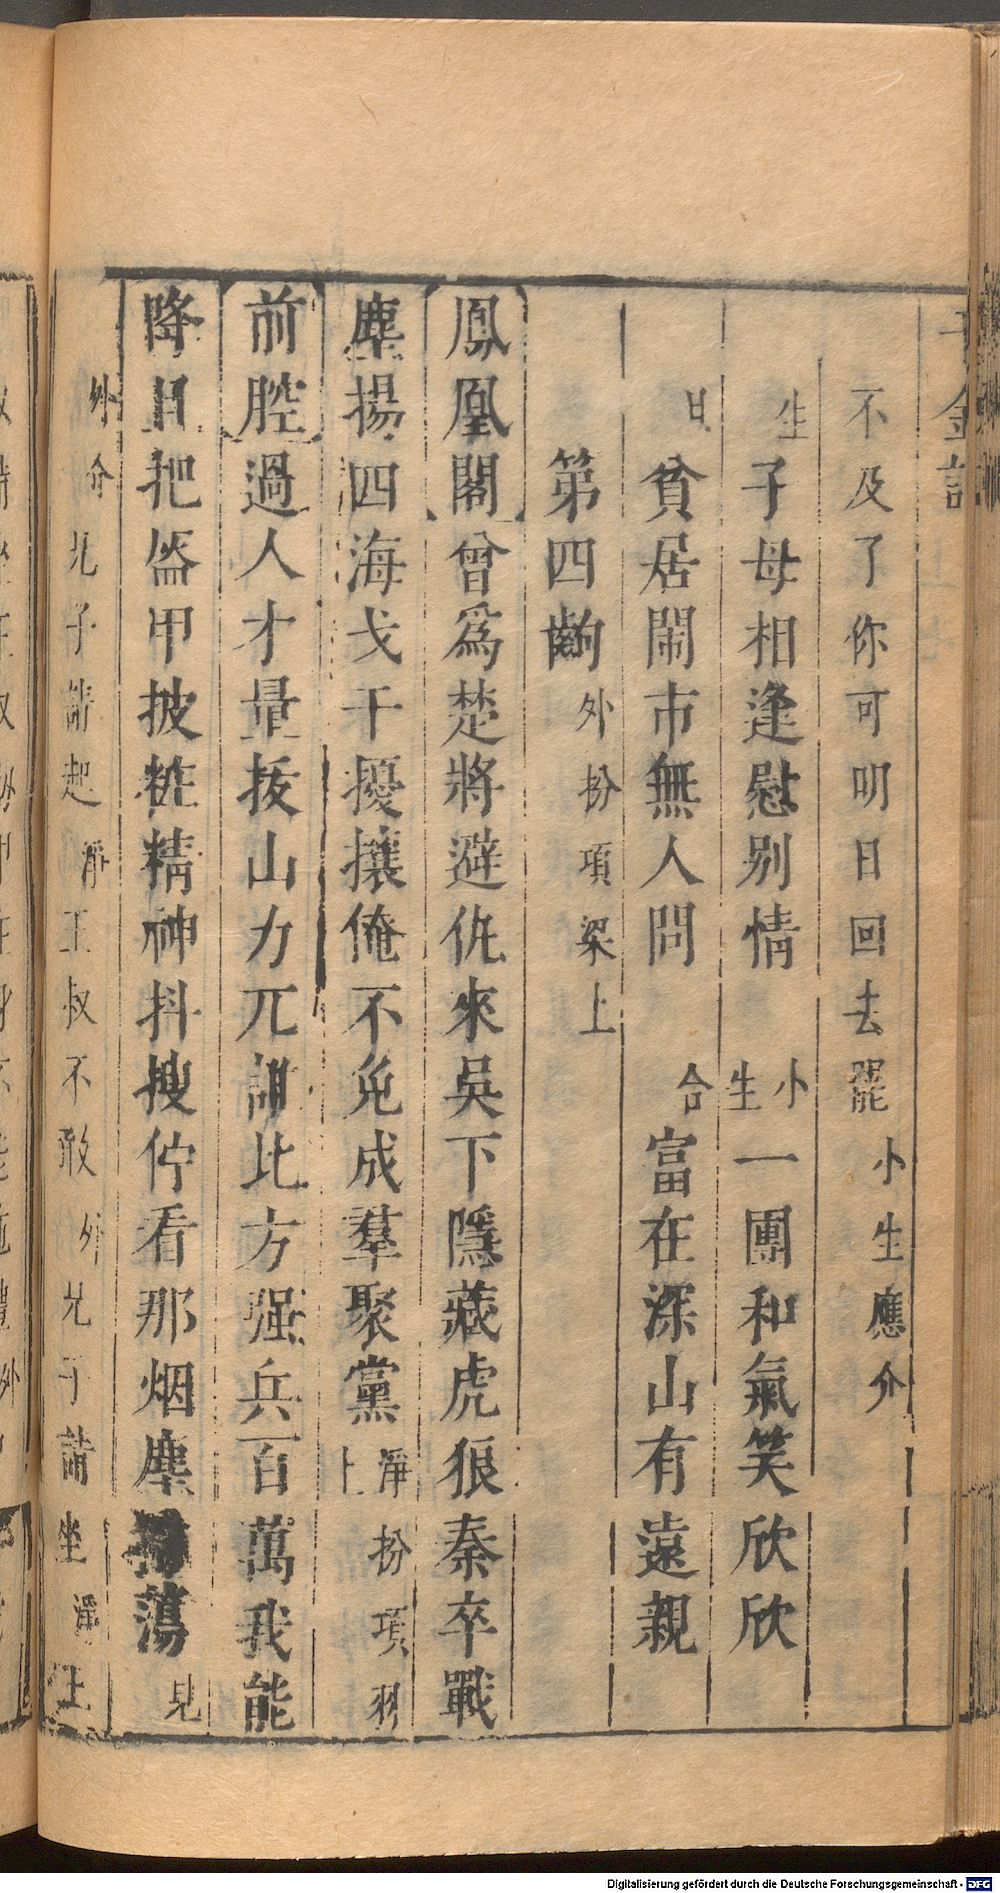 千金記
不及了你可明日回去罷小生應介
生子母相逢慰别情小生一團和氣笑欣欣
旦貧居閙市無人問合富在深山有遠親
第四齣外扮項梁上
鳳凰閣曾爲楚將避仇來吳下隱藏虎狼秦卒戰
塵揚四海戈干擾攘俺不免成羣聚黨淨扮項羽上
前腔過人才量拔山力兀誰比方强兵百萬我能
降日把盔甲披粧精神抖搜佇看那烟塵掃蕩見
外介兄子請起淨王叔不敢外兄子請坐淨上
Digitalisierung gefördert durch die Deutsche Forschungsgemeinschaft - DFG